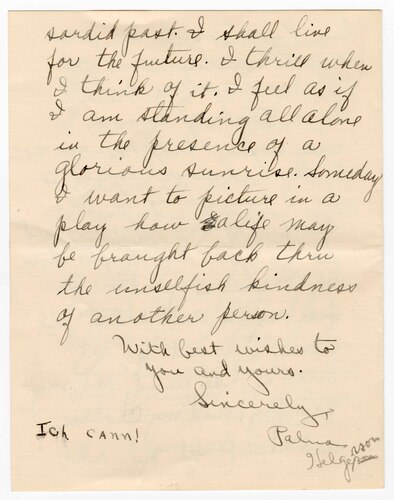 sordid past. I shall live
for the future. I thrill when
I think of it. I feel as if
I am standing all alone
in the presence of a
glorious sunrise. Someday
I want to picture in a
play how a life may
be brought back thru
the unselfish kindness
of another person.
With best wishes to
you and yours.
Sincerely,
Ich cann!
Palma
Helgesson